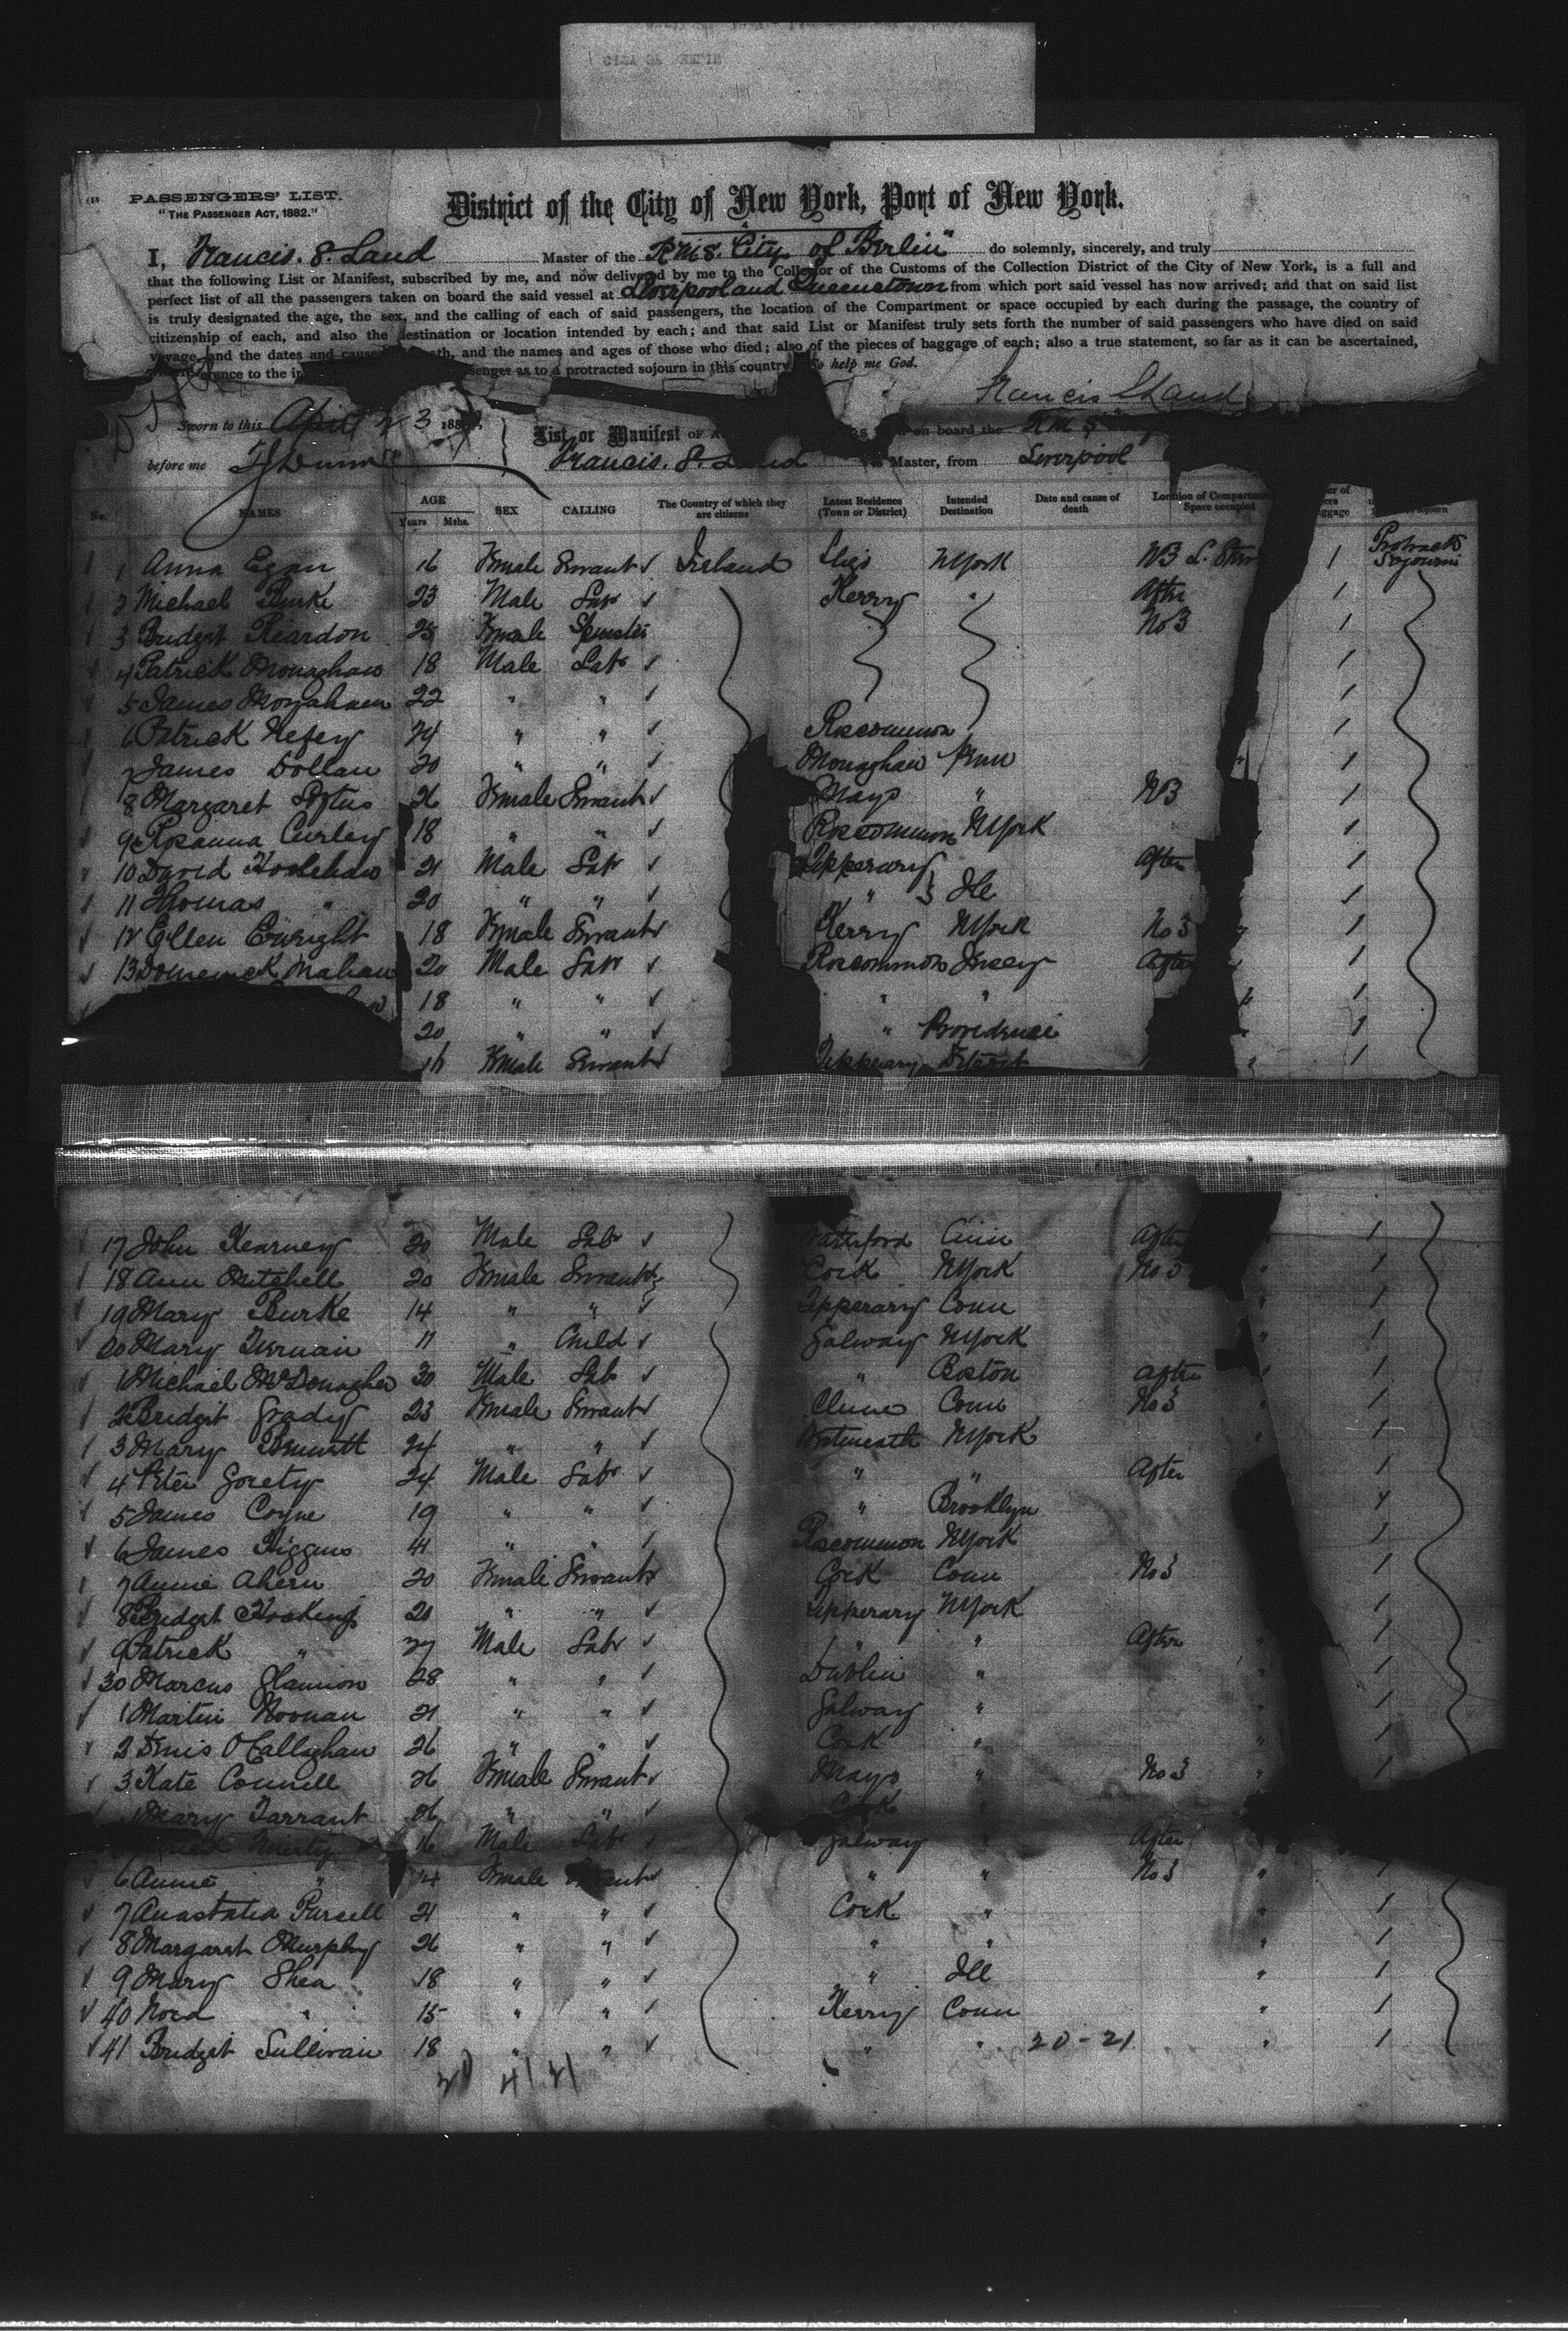 PASSENGERS' LIST.
"THE PASSENGER ACT, 1882."
District of the City of New York, Port of New York.
I, Francis. S. Land Master of the R.M.S. "City of Berlin" do solemnly, sincerely, and truly
that the following List or Manifest, subscribed by me, and now delivered by me to the Collector of the Customs of the Collection District of the City of New York, is a full and
perfect list of all the passengers taken on board the said vessel at Liverpool and Queenstown from which port said vessel has now arrived; and that on said list
is truly designated the age, the sex, and the calling of each of said passengers, the location of the Compartment or space occupied by each during the passage, the country of
citizenship of each, and also the destination or location intended by each; and that said List or Manifest truly sets forth the number of said passengers who have died on said
voyage, and the dates and cause and the names and ages of those who died; also of the pieces of baggage of each; also a true statement, so far as it can be ascertained,
to the as to a protracted sojourn in this country. So help me God.
Francis S Land
Sworn to this April 23 188 List or Manifest OF on board the
before me Francis. S. Land Master, from Liverpool
No. NAMES AGE Years Mths. SEX CALLING The Country of which they are citizens Latest Residence (Town or District) Intended Destination Date and cause of death Location of Compartment Space occupied
1 Anna Egan 16 Female Servant Ireland Sligo NYork No3 1 Protracted Sojourn
2 Michael Burke 23 Male Labr Kerry " After 1
3 Bridget Reardon 25 Female Spinster No3 1
4 Patrick Monaghan 18 Male Labr 1
5 James 22 " " 1
6 Patrick 24 " " Roscommon 1
7 James Dollan 20 " " Monaghan 1
8 Margaret Loftus 26 Female Servant Mayo " No3 1
9 Rosanna Curley 18 " " Roscommon NYork 1
10 David 21 Male Labr Tipperary After 1
11 Thomas " 20 " " " Ill 1
12 Ellen Enright 18 Female Servant Kerry NYork No3 1
13 Domenick Mahan 20 Male Labr Roscommon Jersey After 1
18 " " " " 1
20 " " " Providence 1
16 Female Servant Tipperary Detroit 1
17 John Kearney 20 Male Labr Waterford Cinn After 1
18 Ann Mitchell 20 Female Servant Cork NYork No3 1
19 Mary Burke 14 " " Tipperary Conn 1
20 Mary Kernan 11 " Child Galway NYork 1
1 Michael McDonagher 30 Male Labr " Boston After 1
2 Bridgit Grady 23 Female Servant Clare Conn No3 1
3 Mary Bennett 24 " " Westmeath NYork 1
4 Peter Gorety 24 Male Labr " " After 1
5 James Coyne 19 " " " Brooklyn 1
6 James Higgins 41 " " Roscommon NYork 1
7 Annie Ahern 20 Female Servant Cork Conn No3 1
8 Bridget Hosking 21 " " Tipperary NYork 1
9 Patrick " 27 Male Labr " After 1
30 Marcus Hannon 28 " " Dublin " 1
1 Martin Noonan 21 " " Galway " 1
2 Denis O'Callaghan 26 " " Cork " 1
3 Kate Connell 26 Female Servant Mayo " No3 1
Mary Tarrant 26 " " Cork
16 Male Labr Galway After
6 Annie " 14 Female Servant " " No3 " 1
7 Anastatia Pursell 21 " " Cork " " 1
8 Margaret Murphy 26 " " " " " 1
9 Mary Shea 18 " " " Ill " 1
40 Nora " 15 " " Kerry Conn " 1
41 Bridget Sullivan 18 " " " " 20-21 " 1
20 41 21